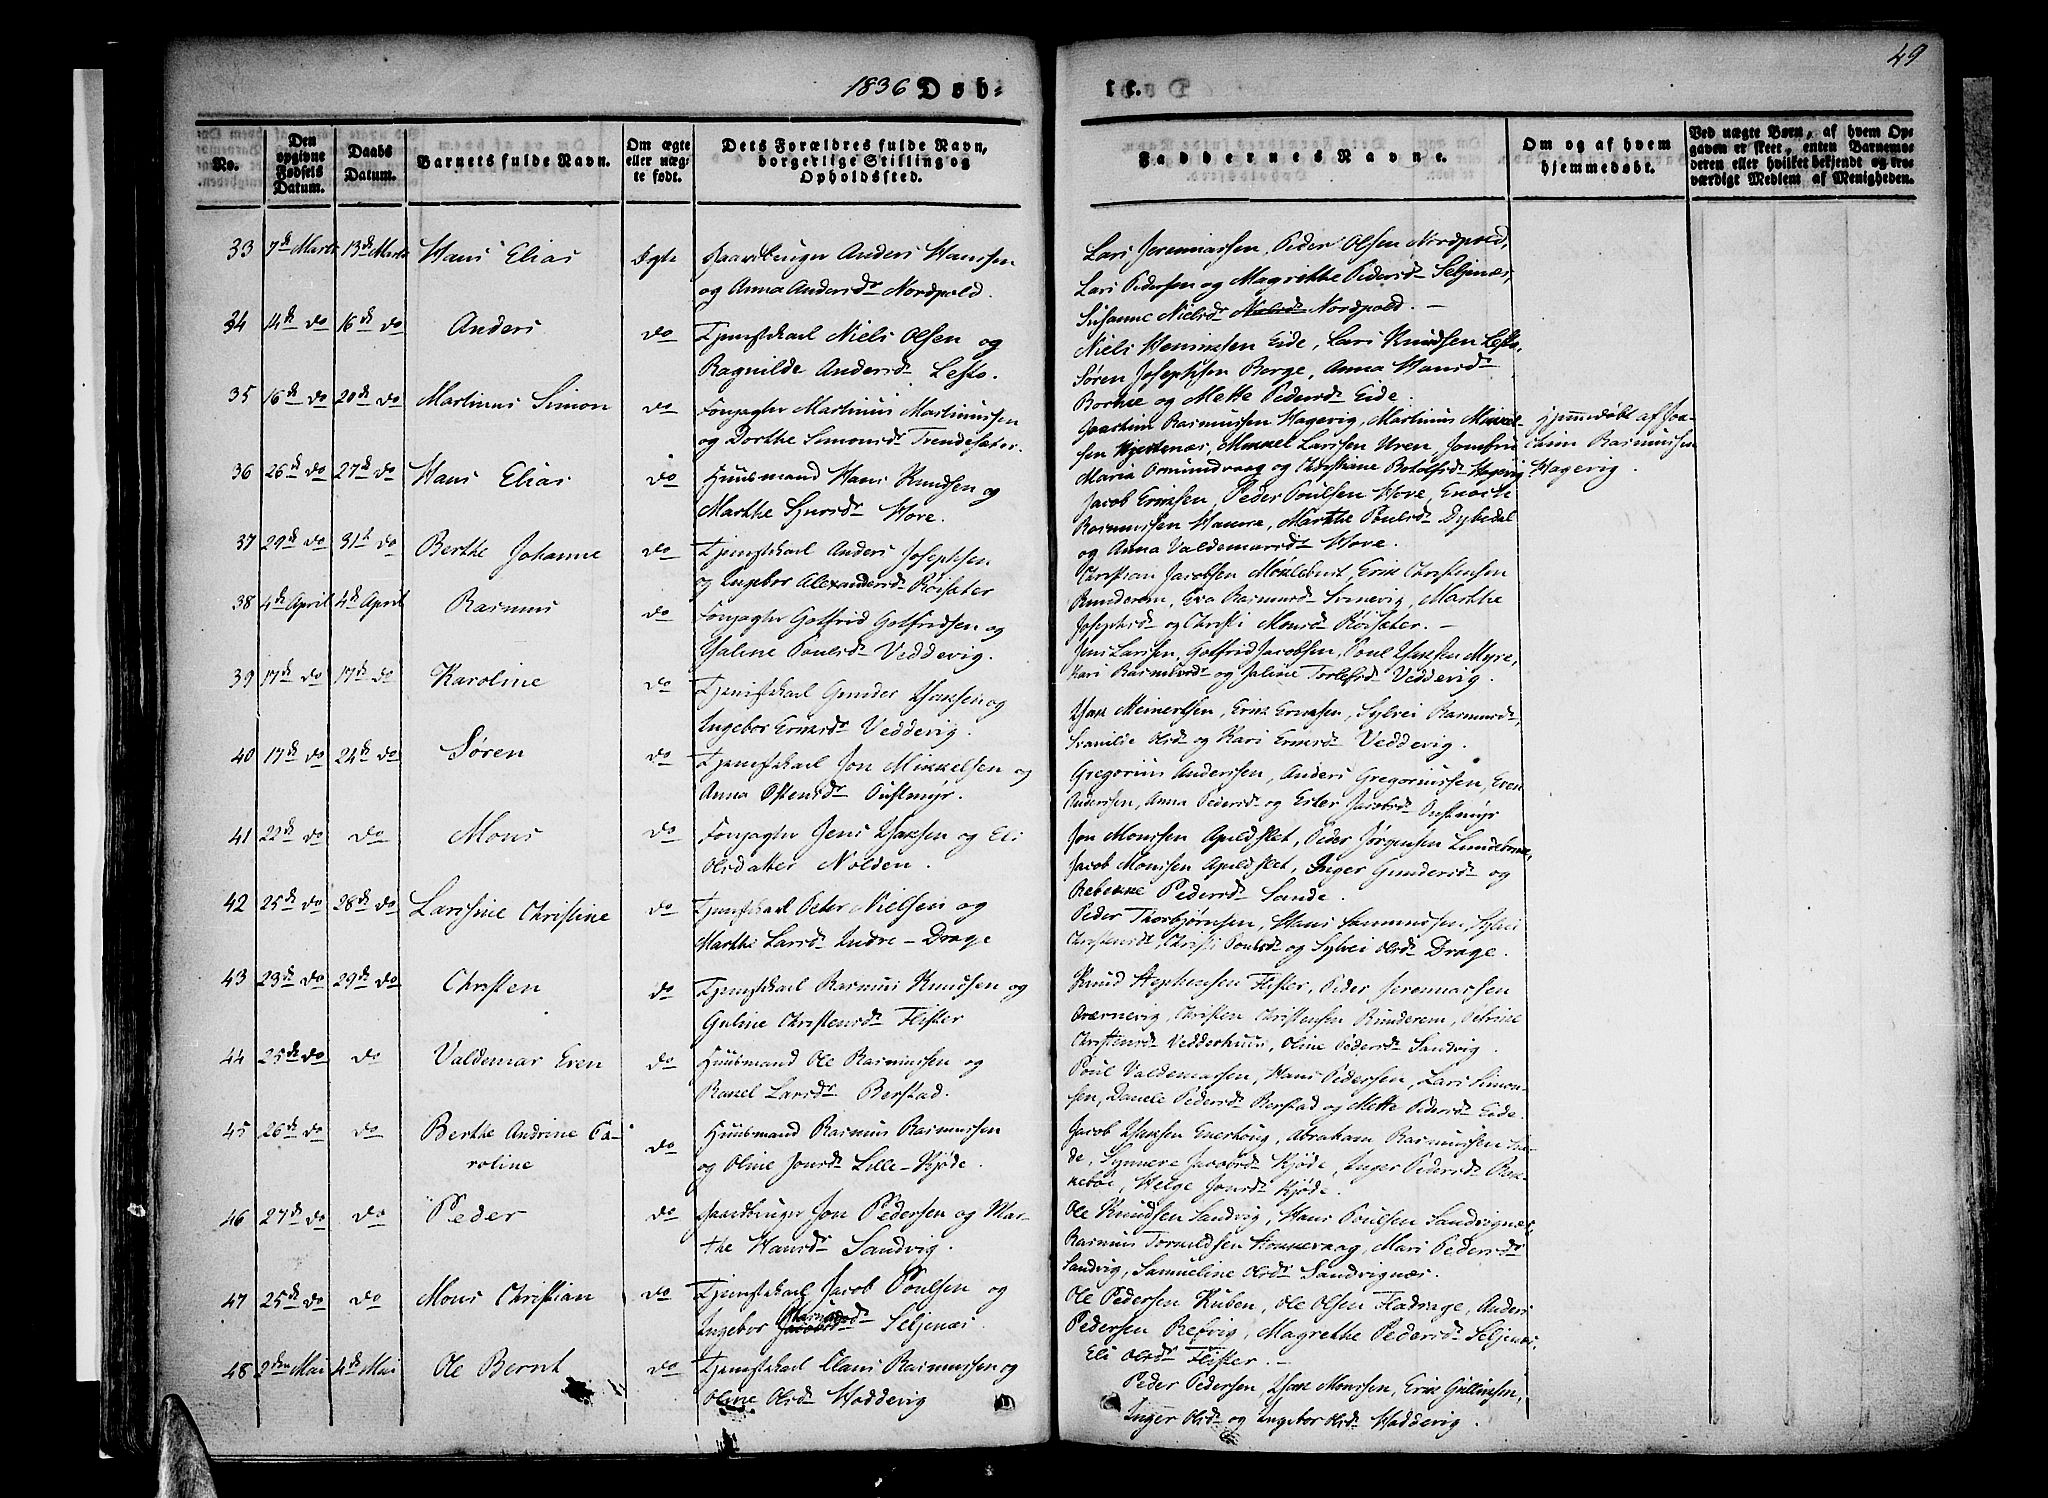 49
1836 Døb-
te.
No.
Den opgivne Fødsels Datum.
Daabs Datum.
Barnets fulde Navn.
Om ægte eller uægte født.
Dets Forældres fulde Navn, borgerlige Stilling og Opholdssted.
Faddernes Navne.
Om og af hvem hjemmedøbt.
Ved uægte Børn, af hvem Opgaven er skeet, enten Barnemoderen eller hvilket bekjendt og troværdigt Medlem af Menigheden.
33 7de Marts 13de Marts Hans Elias Ægte Gaardbruger Anders Hanssen
og Anna Andersdr Nordpold.
Lars Jeremiassen, Peder Olsen Nordpold,
Lars Pedersen og Magrethe Pedersdr Seljenæs,
Susanne Nielsdr Nordpold. —
34 14de do 16de do Anders do Tjenestekarl Niels Olsen og
Ragnilde Andersdr Lesto.
Niels Henriksen Eide, Lars Knudsen Lesto,
Søren Josephsen Berge, Anna Hansdr
og Mette Pedersdr Eide.
35 16de do 20de do Martinus Simon do Martinus Martinussen
og Dorthe Simonsdr
Joachim Rasmussen Hagevig, Martinus Mikkel-
sen Mikkel Larssen Uren, Jomfru
Maria Osmundvaag og Christiane Hagevig
hjemmedøbt af Joa-
chim Rasmussen
Hagevig.
36 26de do 27de do Hans Elias do Huusmand Hans Knudsen og
Marthe Sjursdr Hove.
Jacob Eriksen, Peder Poulsen Hove, Enoch
Rasmussen Marthe Poulsdr Dybedal
og Anna Valdemarsdr Hove.
37 29de do 31te do Berthe Johanne do Tjenestekarl Anders Josephsen
og Ingebor Alexandersdr Røisæter
Christian Jacobsen Møklebust, Erik Christensen
Runderem, Eva Rasmusdr Marthe
Josephsdr og Christi Monsdr Røisæter. —
38 4de April 4de April Rasmus do Gotfrid Gotfridsen og
Poulsdr Veddevig.
Jens Larsen, Gotfrid Jacobsen, Poul Isaksen Myre,
Kari Rasmusdr og Jaline Veddevig.
39 17de do 17de do Karoline do Tjenestekarl Gunder Isaksen og
Ingebor Eriksdr Veddevig.
Isak Meinertsen, Erik Eriksen, Sylvei Rasmusdr,
Olsdr og Kari Eriksdr Veddevig.
40 17de do 24de do Søren do Tjenestekarl Jon Mikkelsen og
Anna Ostensdr Oustemyr.
Gregorius Anderssen, Anders Gregoriussen, Even
Anderssen, Anna Pedersdr og Ester Jacobsdr Oustemyr
41 22de do do Mons do Jens Isaksen og Eli
Olsdatter Nolden.
Jon Monssen Apuldset, Peder Jørgensen
Jacob Monssen Apuldset, Inger Gundersdr og
Rebekke Pedersdr Sande.
42 25de do 28de do Larssine Christine do Tjenestekarl Peter Nielsen og
Marthe Larsdr Indre-Drage
Peder Thorbjørnsen, Hans
Christensdr, Christi Poulsdr og Sylvei Olsdr Drage.
43 23de do 29de do Christen do Tjenestekarl Rasmus Knudsen og
Guline Christensdr Flister
Knud Stephensen Flister, Peder Jeremiassen
Christen Christensen Runderem,
Christensdr Vedderhuus, Oline Pedersdr Sandvig.
44 25de do do Valdemar Even do Huusmand Ole Rasmussen og
Rakel Larsdr Berstad.
Poul Valdemarsen, Hans Pederssen, Lars Simon-
sen, Danele Pedersdr Berstad og Mette Pedersdr Eide.
45 26de do do Berthe Andrine Ca-
roline do Huusmand Rasmus Rasmussen
og Oline Jonsdr Lille-Kjøde.
Jacob Isaksen Abraham Rasmussen
Jacobsdr Kjøde, Inger Pedersdr
Helge Jonsdr Kjøde.
46 27de do do Peder do Gaardbruger Jon Pedersen og Mar-
the Hansdr Sandvig.
Ole Knudsen Sandvig, Hans Poulsen Sandvignæs,
Rasmus Mari Pedersdr
Sandvig, Samueline Olsdr Sandvignæs.
47 25de do do Mons Christian do Tjenestekarl Jacob Poulsen og
Ingebor Seljenæs.
Ole Pedersen Kuben, Ole Olsen Fladrage, Anders
Pedersen Refvig, Magrethe Pedersdr Seljenæs,
Eli Olsdr Flister. —
48 2den Mai 4de Mai Ole Bernt do Tjenestekarl Claus Rasmussen og
Oline Olsdr Haddevig
Peder Pedersen, Isak Monssen, Erik
Inger Olsdr og Ingebor Olsdr Haddevig.